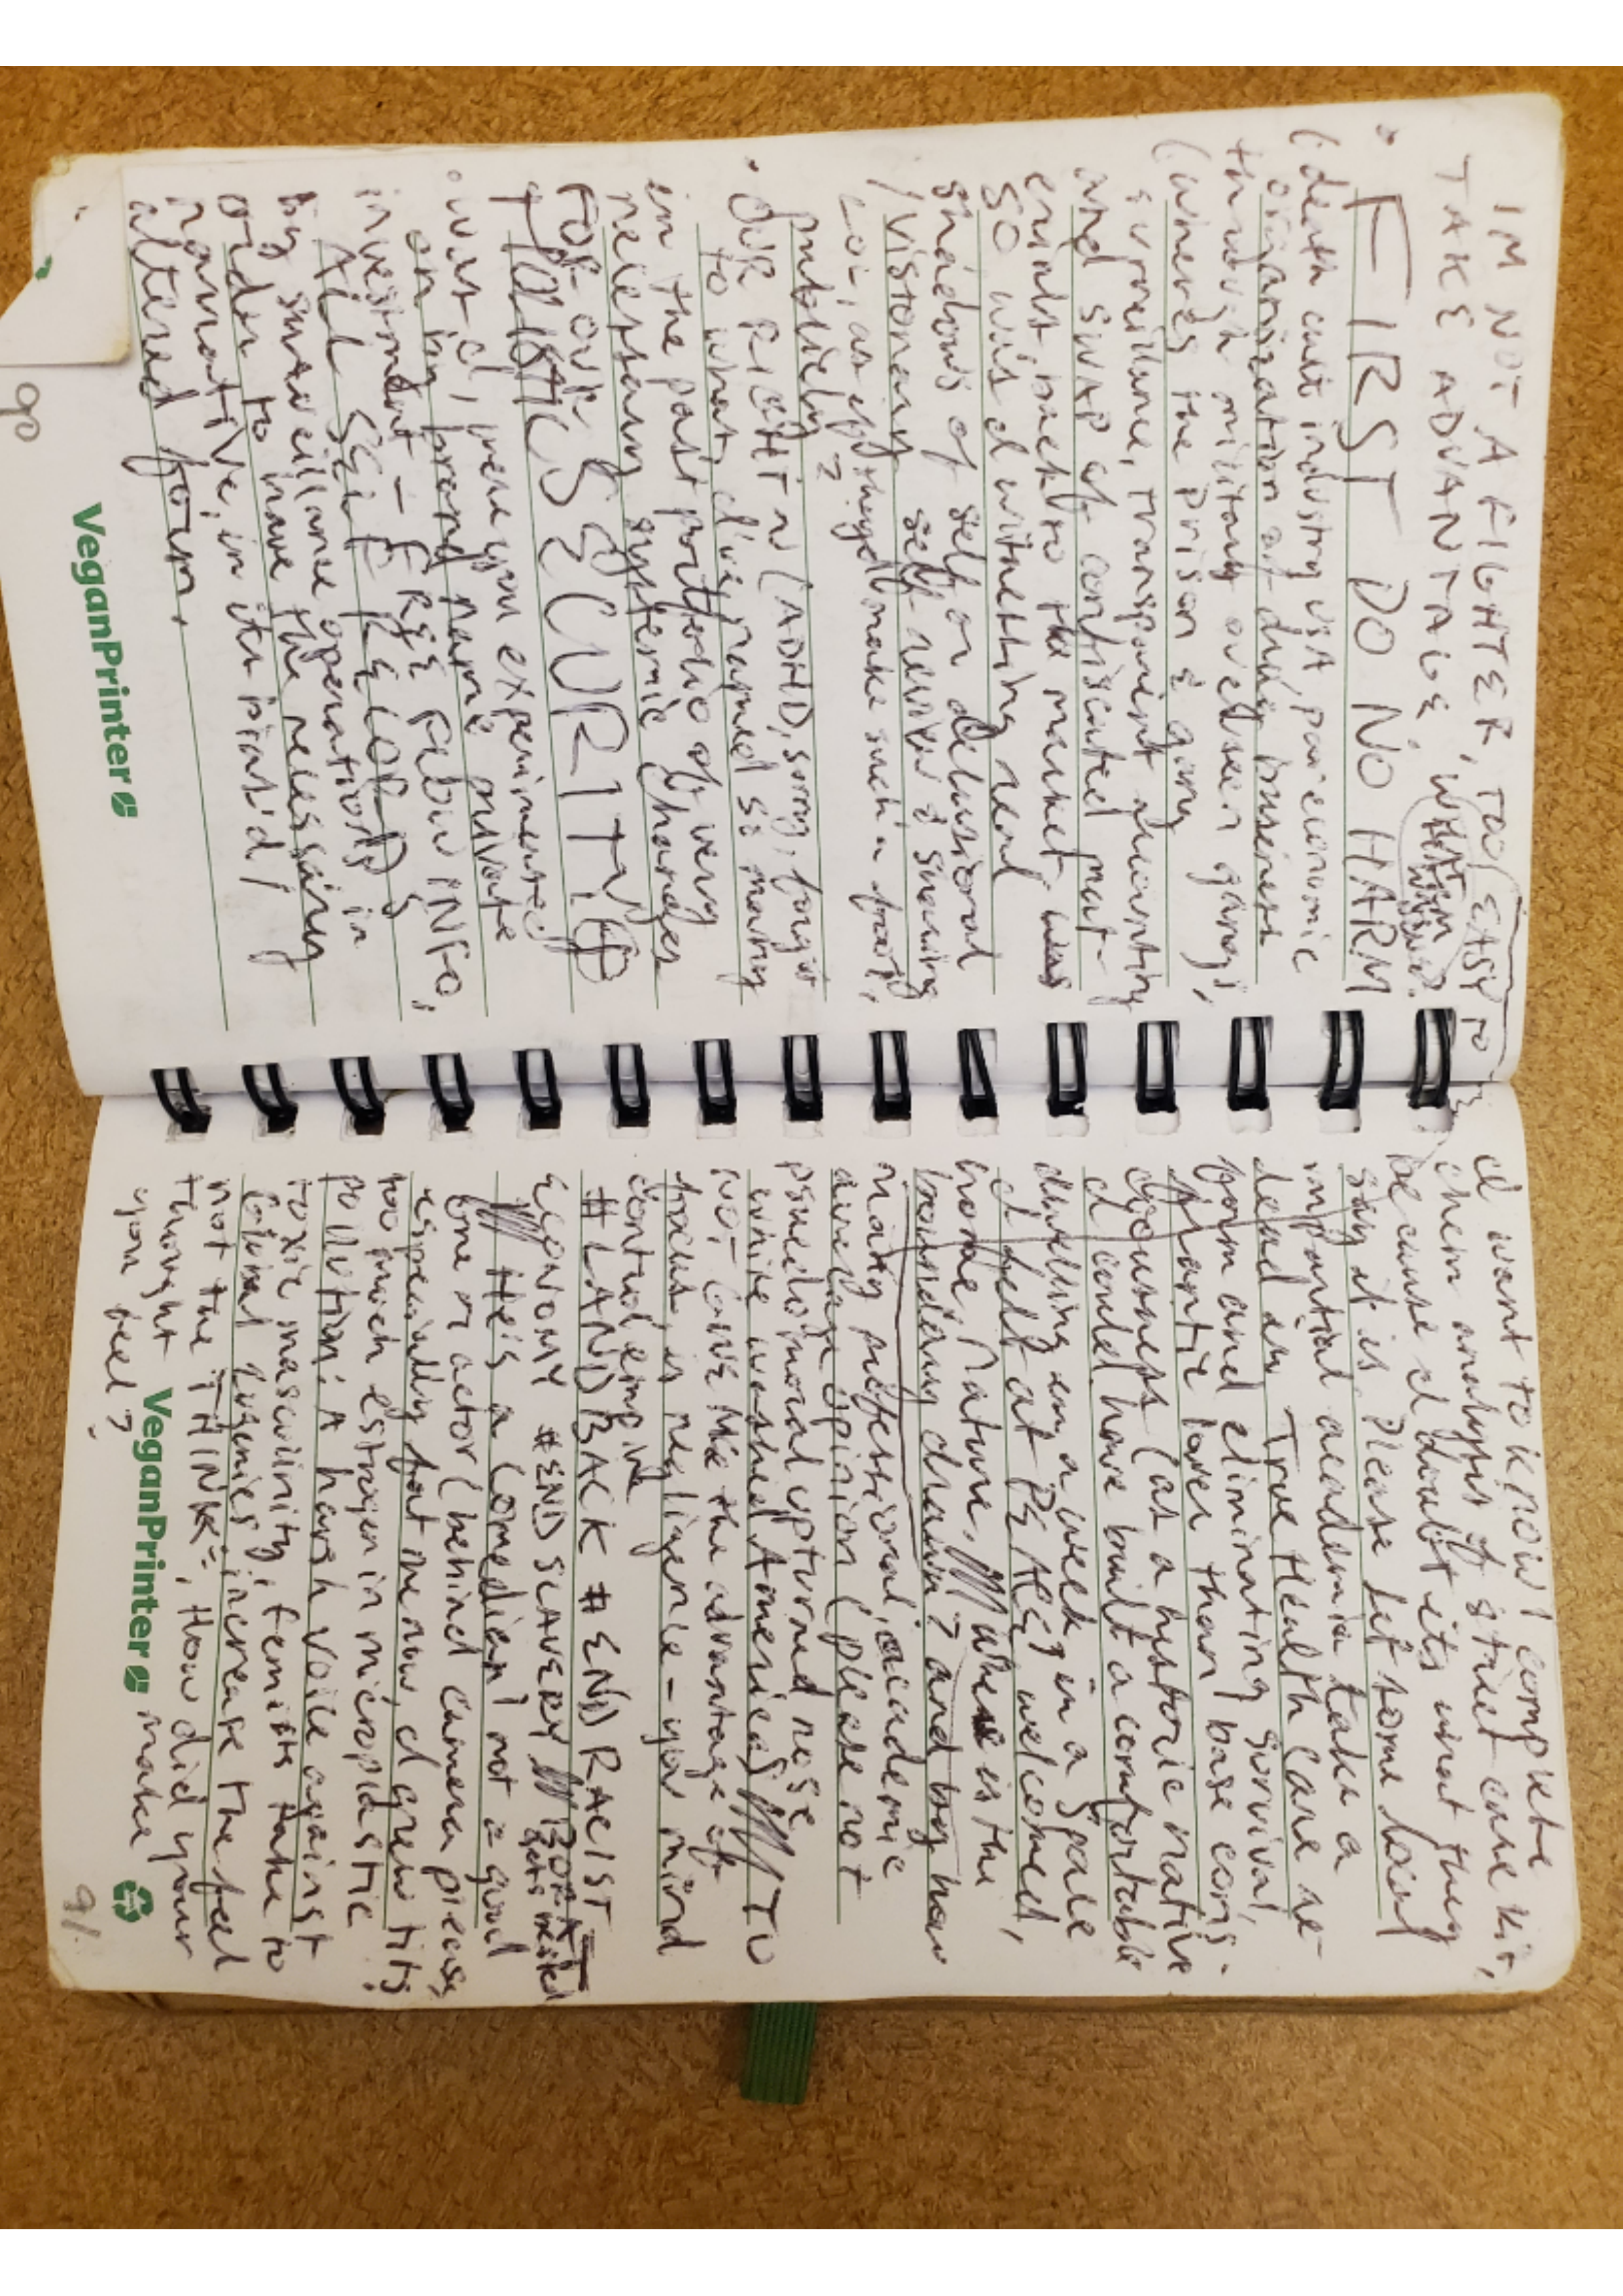 IM NOT A FIGHTER, TOO EASY TO
TAKE ADVANTAGE,
• FIRST DO NO HARM
(death cult industry USA, pow economic
organization of drug business
through military overseen gangs,
(wherès the prison & gang
surveillance, transparent accounting
and swap of confiscated mat-
erials, back to the market was
SO was I witnessing real
shadows of self or delusional
/visionary self-review & sueing
LOL, as if they'd make such a fool,
publicly?
• OUR RIGHT N (ADHD, sorry, forgot
to what, I've named so many
in the past portfolio of very
necessary systemic changes
FOR OUR SECURITY
• was I, were you experimented
on by brand name private
investment - FREE INFO,
ALL SELF RECORD
by surveillance operations in
order to have the necessary
narrative, in its pirat'd/
altered form.
VeganPrinter
90
I want to know/complete
chem analysis of street care kit,
because I doubt its what they
say it is. Please let some local
impartial academia take a
dead en True Health Care re-
form and eliminating survival,
frantic lower than base cons-
ciousness (as a historic native
I could have built a comfortable
dwelling in a week, in a space
I felt at PEACE, welcomed,
home, nature. where is the
boundary drawn? and by how
many professional, academic
average opinion (please not
psuedomoral upturned nose
white washed America) TO
NOT GIVE ME the advantage of
focus, is negligence - your mind
control empire
#LANDBACK #END RACIST
ECONOMY #END SLAVERY BORAT
He's a comedian! not a good
one or actor (behind camera pieces,
especially fat me now, I grew tits,
too much estrogen in microplastic
pollution: A harsh voice against
toxic masculinity, femists take to
colonial eugenics, increase the feel
not the THINK, How did your
thought make
you feel?
VeganPrinter
91